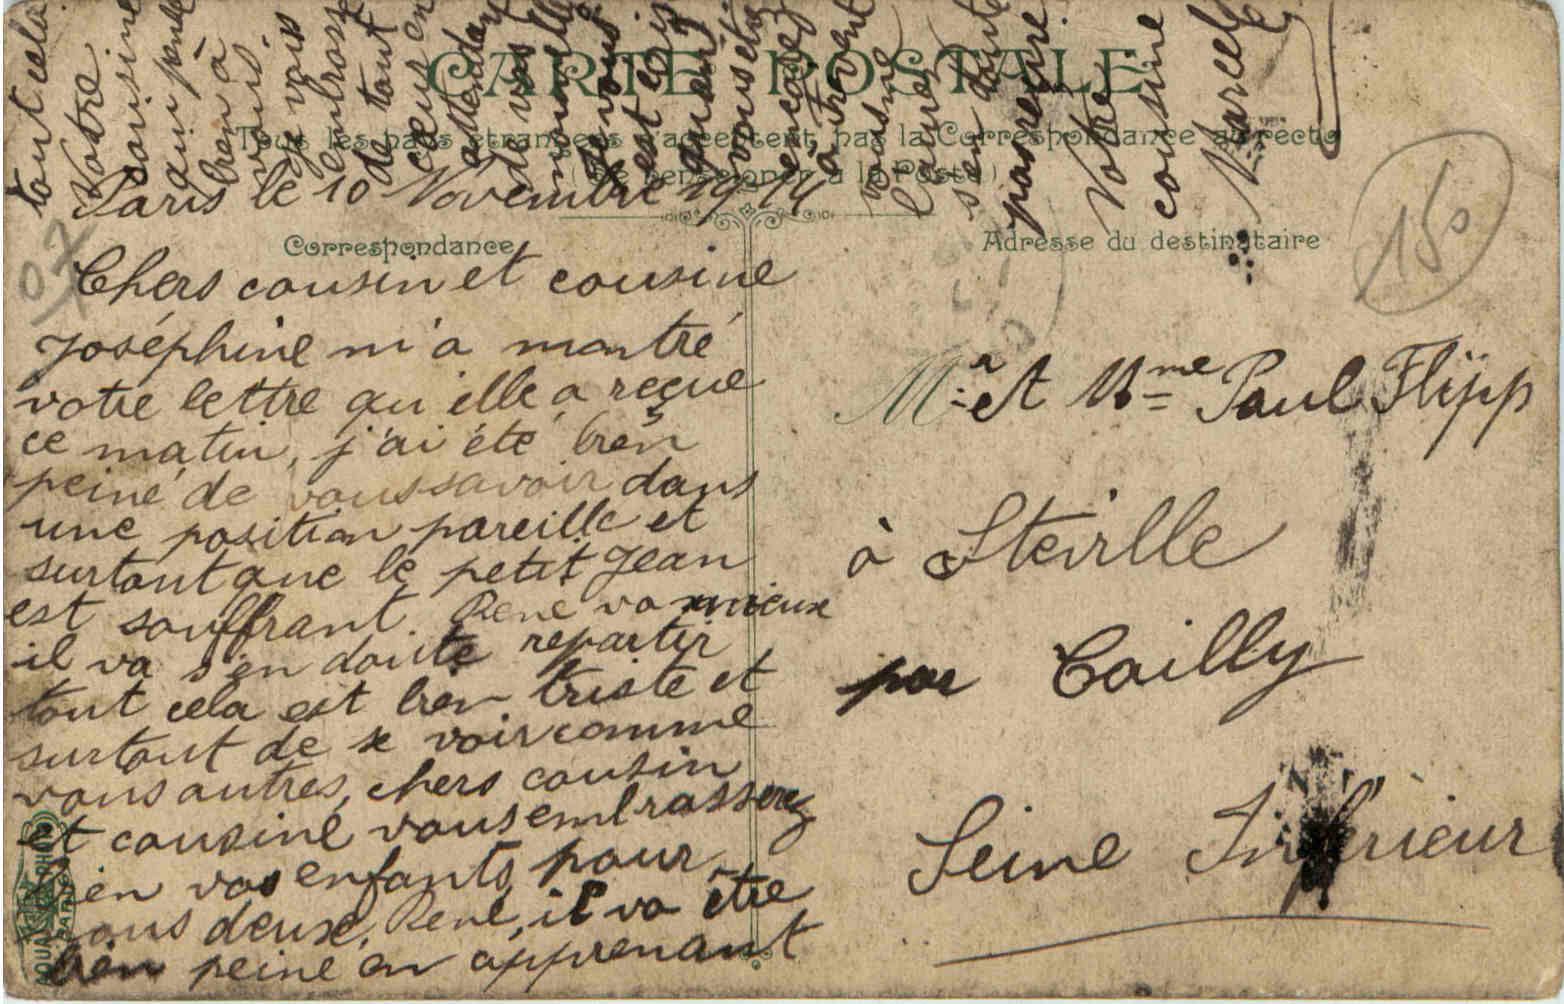 CARTE POSTALE
Tous les pays étrangers n'acceptent pas la Correspondance au recto
(Se renseigner à la Poste)
Correspondance
Adresse du destinataire
Paris le 10 Novembre 1914
Chers cousin et cousine
Joséphine m'a montré
votre lettre qu'elle a reçue
ce matin, j'ai été bien
peiné de vous savoir dans
une position pareille et
surtout que le petit Jean
est souffrant. René va mieux
il va s'en doute repartir
tout cela est bien triste et
surtout de se voir comme
vous autres, chers cousin
et cousine vous embrasserez
bien vos enfants pour
nous deux, René, il va être
bien peiné en apprenant
tout cela.
Votre
cousine
qui pense
bien à
vous.
Je vais
embrasse
de tout
coeur en
attendant
de vos
nouvelle
de vous
est ce
que
vous
encore
à travers
vos
s'en doute
pas écrire
Votre
cousine
Marcel
Mr et Mme Paul Flipp
à Steville
par Cailly
Seine Inférieur
150
07